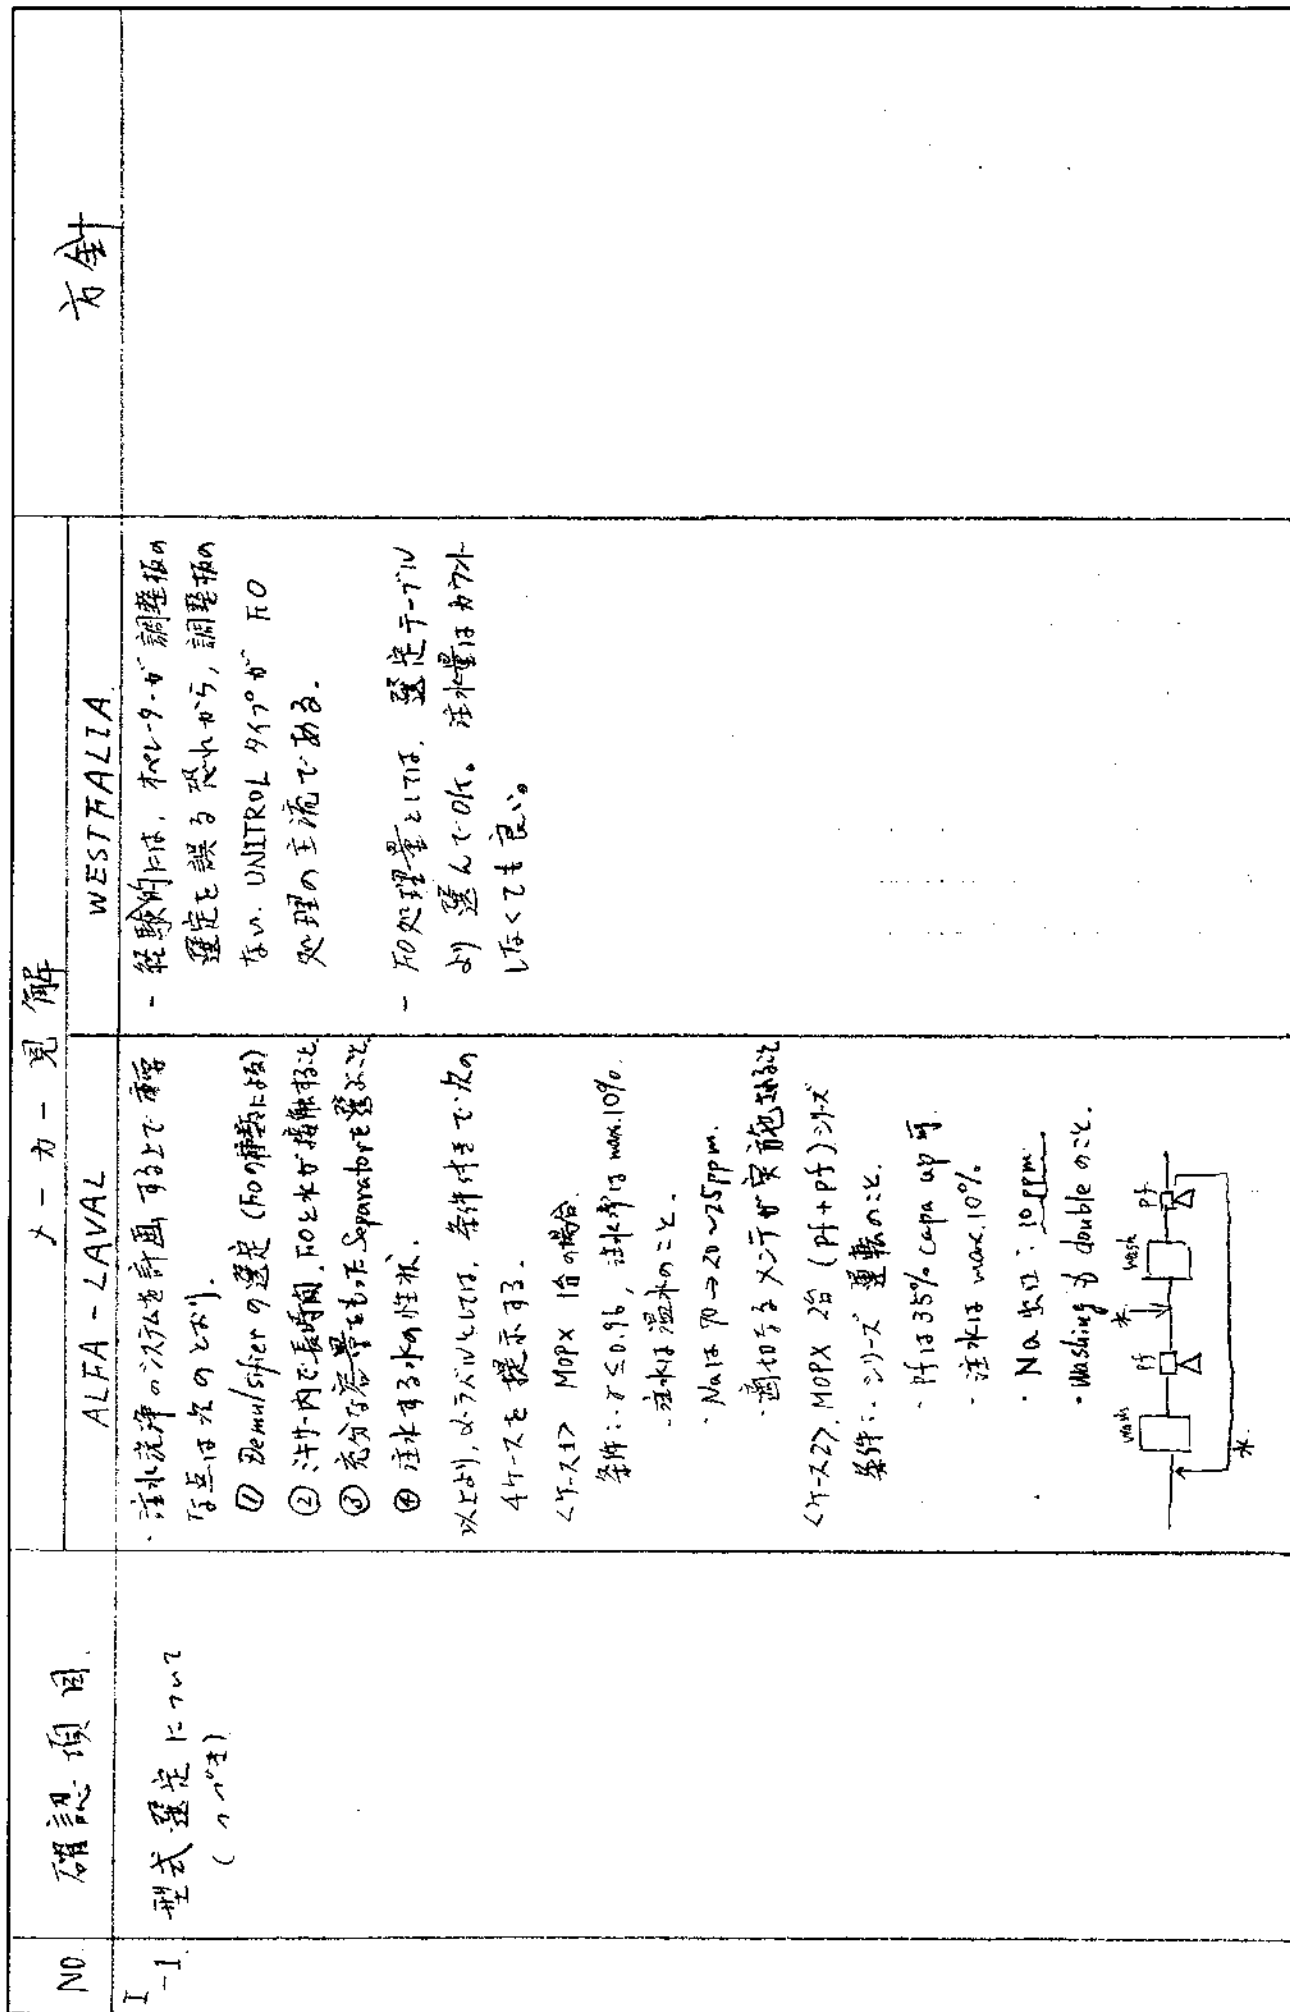 NO.
確認項目.
メーカー見解
方針
ALFA-LAVAL
WESTFALIA
I-1.
型式選定について
(つづき)
・注水洗浄のシステムを計画する上で重要
な点は次のとおり.
① Demulsifierの選定(FOの種類による)
② ミキサー内で長時間, FOと水が接触すること
③ 充分な容量をもったSeparatorを選ぶこと
④ 注水する水の性状.
以上より, α-ラバルとしては, 条件付きで次の
4ケースを提示する.
<ケース1> MOPX 1台の場合.
条件:・γ≤0.96, 注水率はmax.10%.
・注水は温水のこと.
・Naは70→20~25ppm.
・適切なメンテが実施されること
<ケース2>, MOPX 2台 (pf+pf)シリーズ
条件:・シリーズ運転のこと.
・Pfは35% capa up可.
・注水はmax.10%
・Na出口:10ppm.
・Washingもdoubleのこと.
wash
Pf
水
wash
Pf
水
- 経験的には, オペレーターが調整板の
選定を誤る恐れから, 調整板の
ない UNITROLタイプがFO
処理の主流である.
- FO処理量としては, 選定テーブル
より選んでOK。注水量はカウント
しなくても良い。